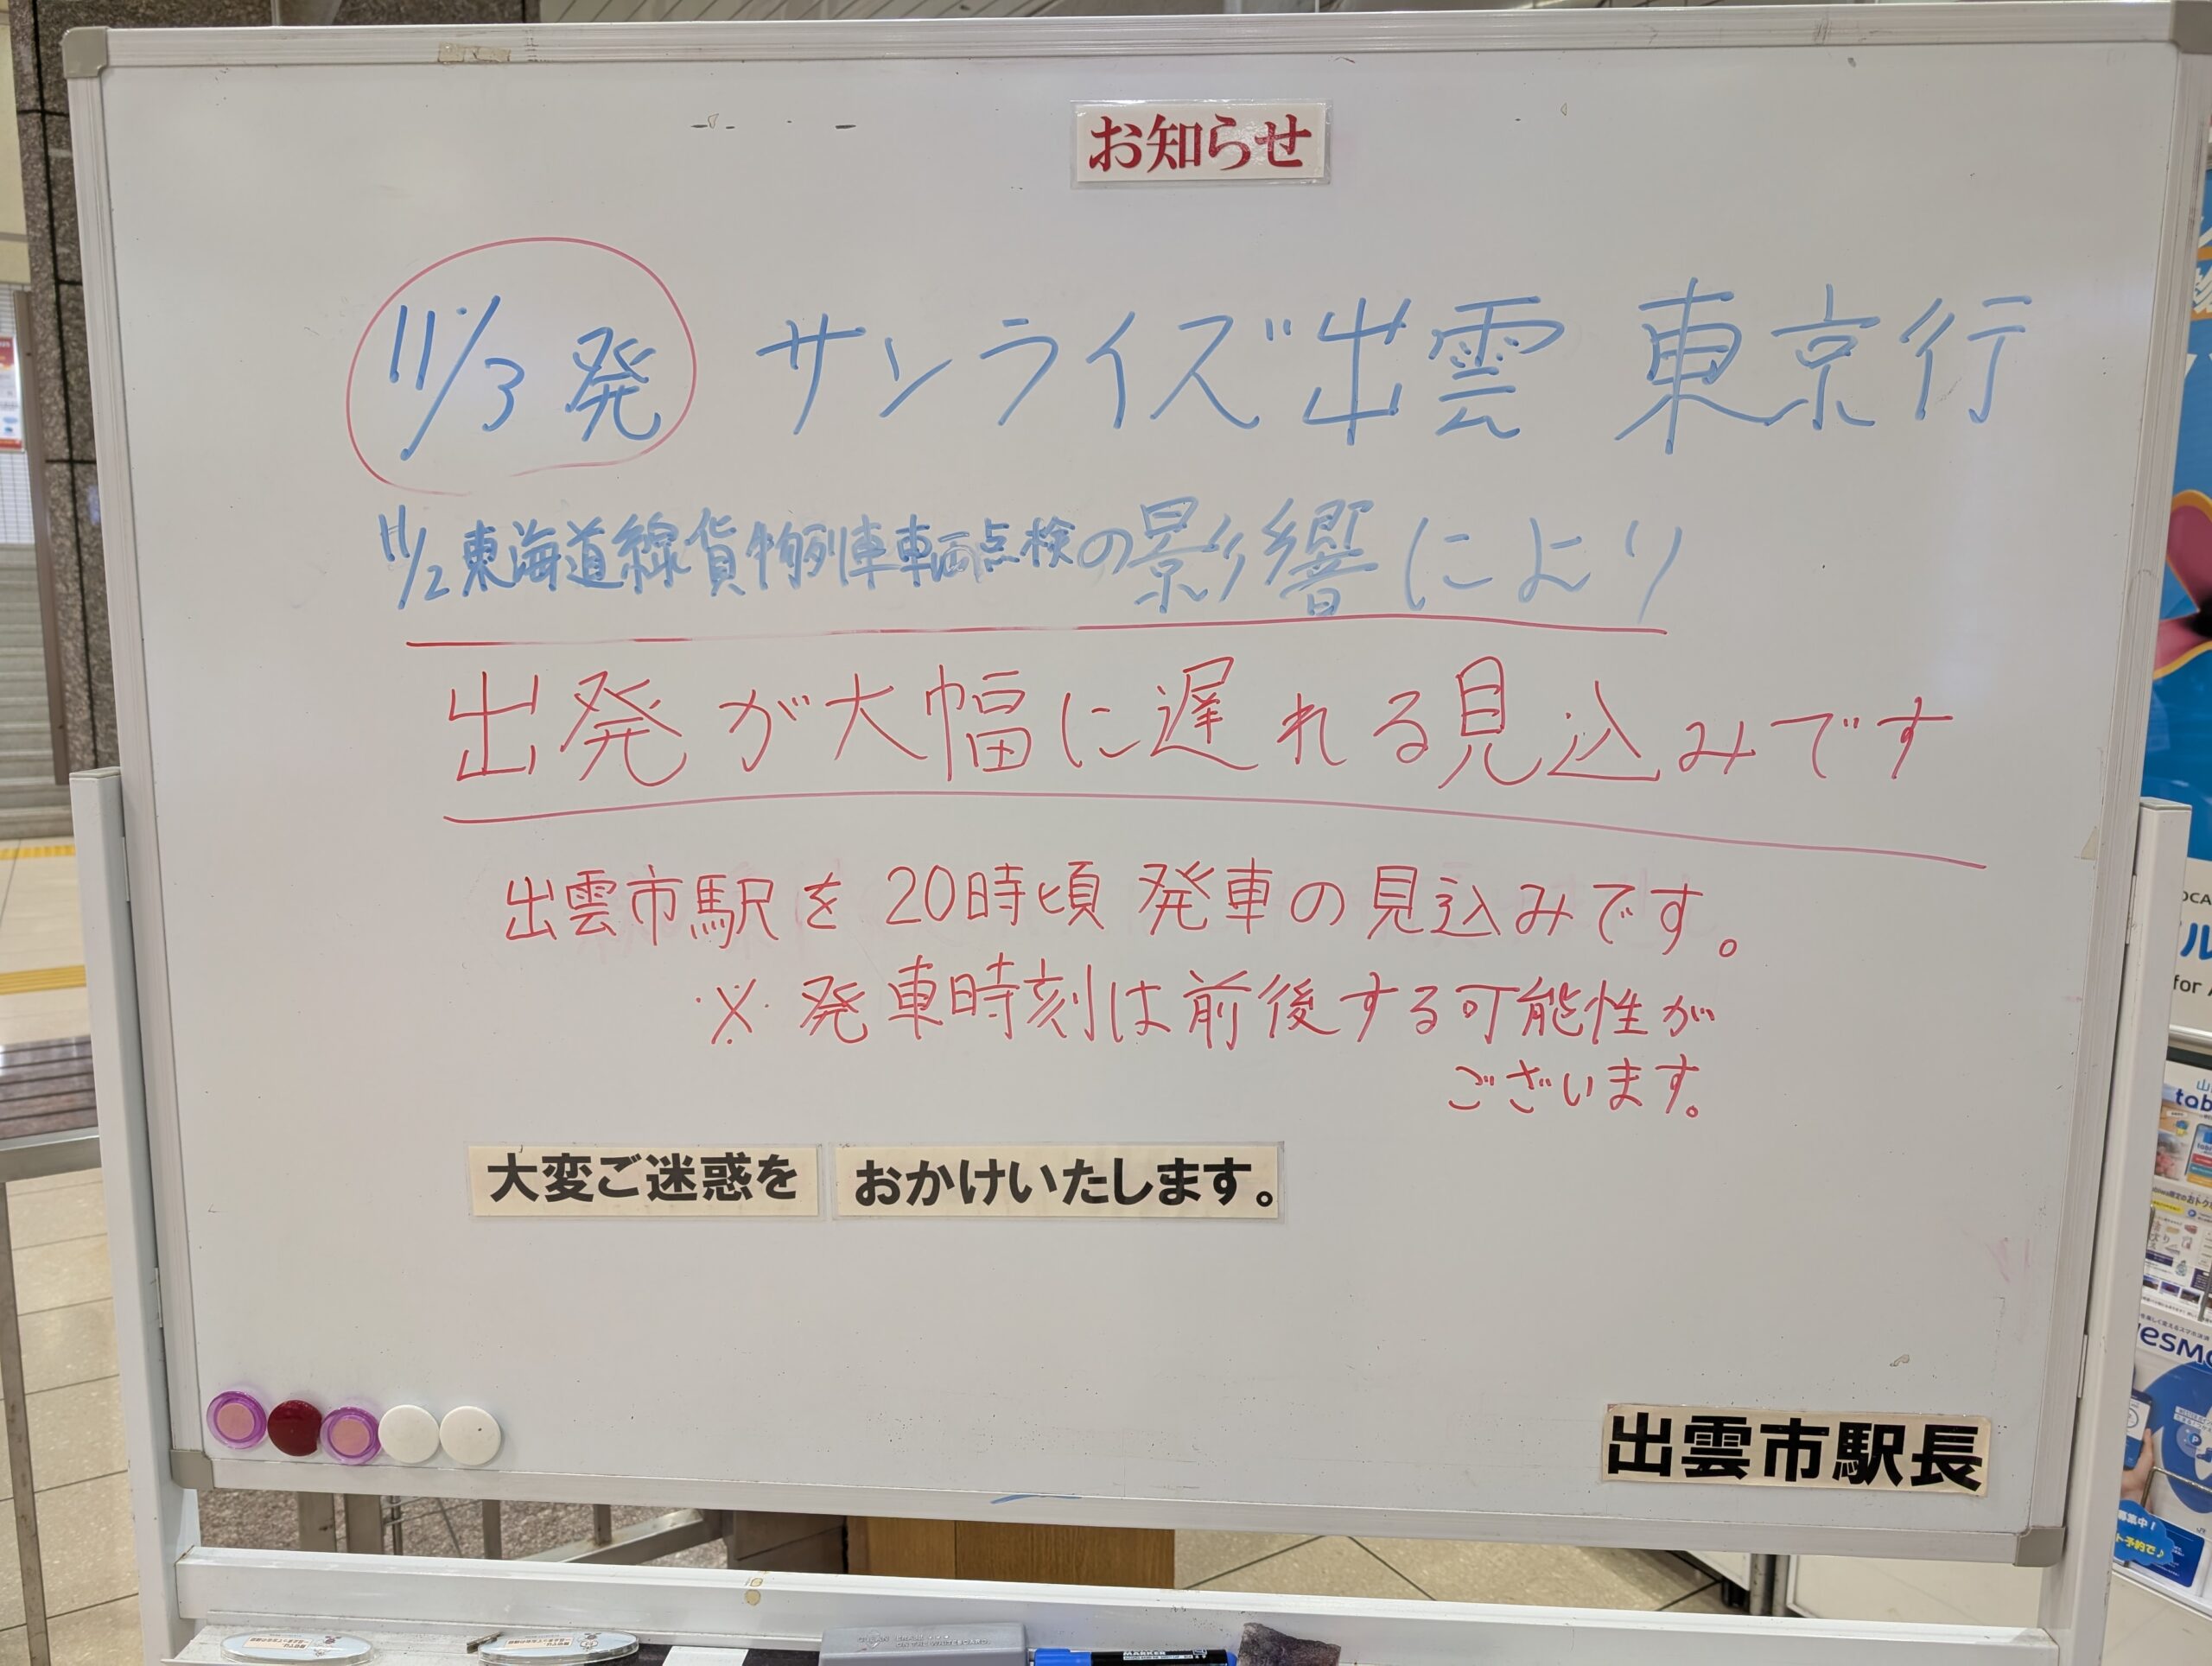 お知らせ
11/3発 サンライズ出雲 東京行
11/2東海道線貨物列車車両点検の影響により
出発が大幅に遅れる見込みです
出雲市駅を20時頃 発車の見込みです。
※発車時刻は前後する可能性が
ございます。
大変ご迷惑を おかけいたします。
出雲市駅長
MARKER